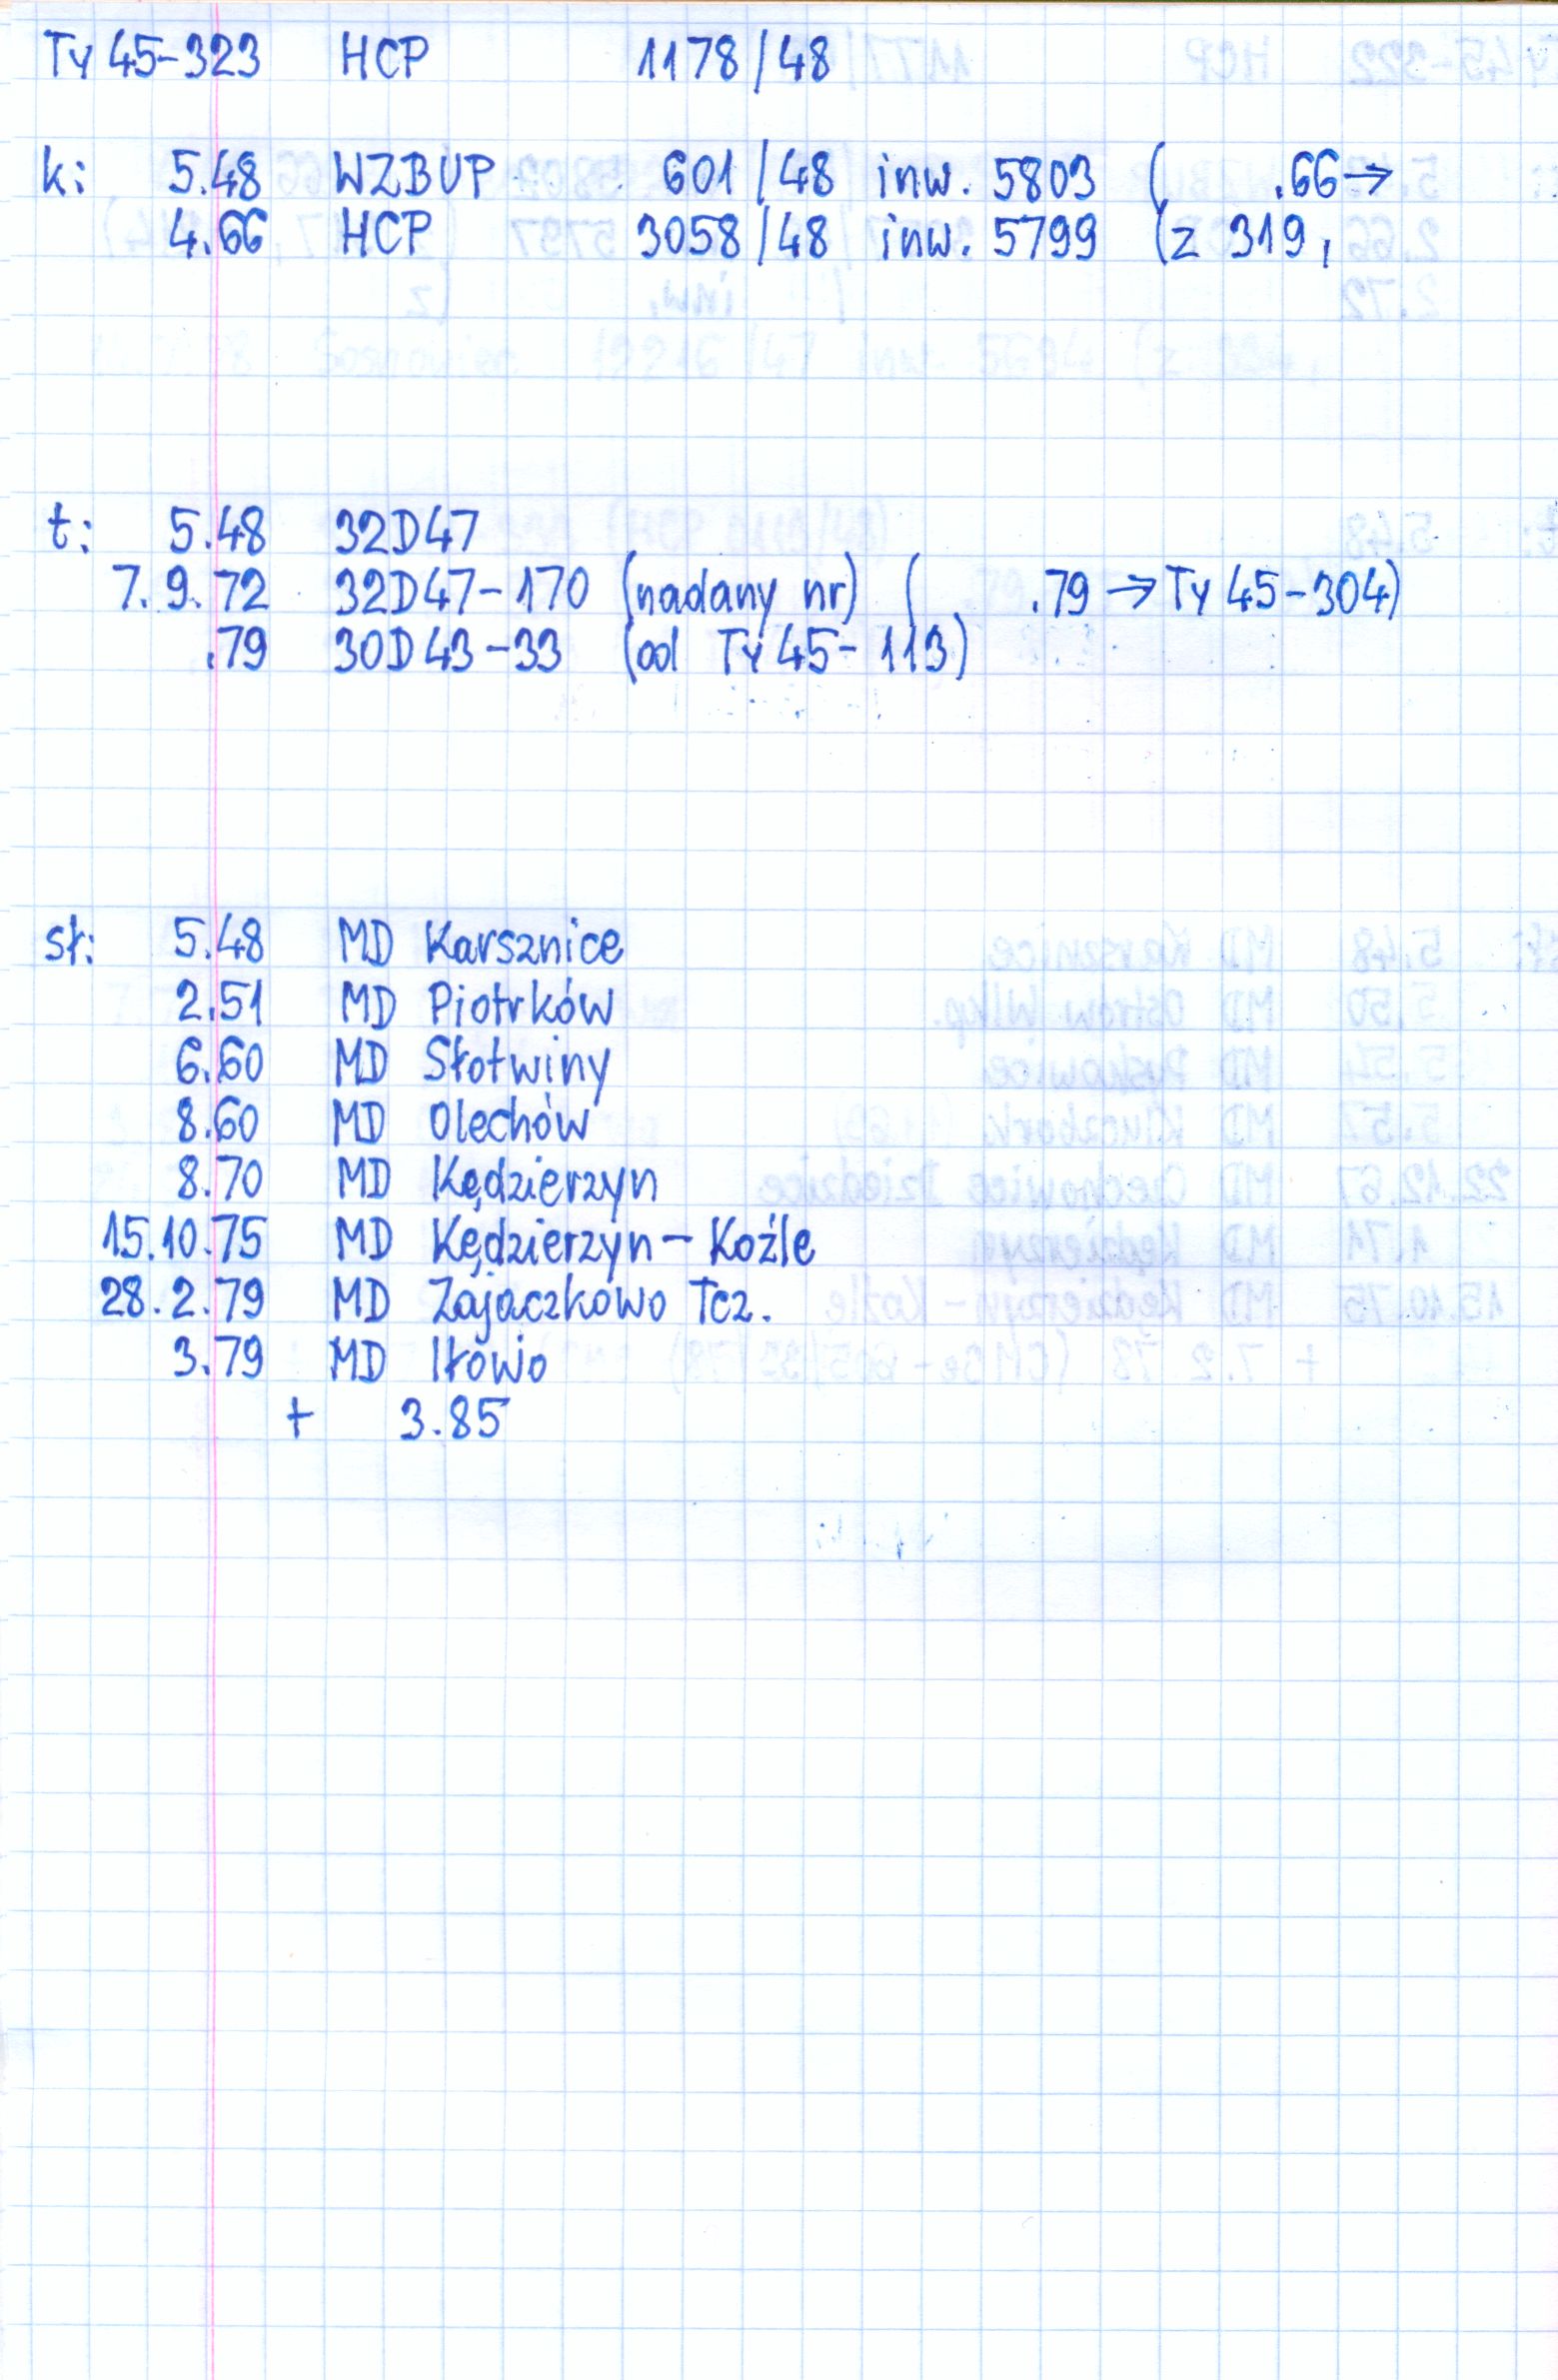 Ty 45-323 HCP 1178/48
k: 5.48 WZBUP 601/48 inw. 5803 ( .66→
4.66 HCP 3058/48 inw. 5799 (z 319,
t: 5.48 32D47
7.9.72 32D47-170 (nadany nr) ( . .79 → Ty 45-304)
.79 30D43-33 (od Ty 45-113)
sł: 5.48 MD Karsznice
2.51 MD Piotrków
6.60 MD Słotwiny
8.60 MD Olechów
8.70 MD Kędzierzyn
15.10.75 MD Kędzierzyn-Koźle
28.2.79 MD Zajączkowo Tcz.
3.79 MD Iłowo
+ 3.85